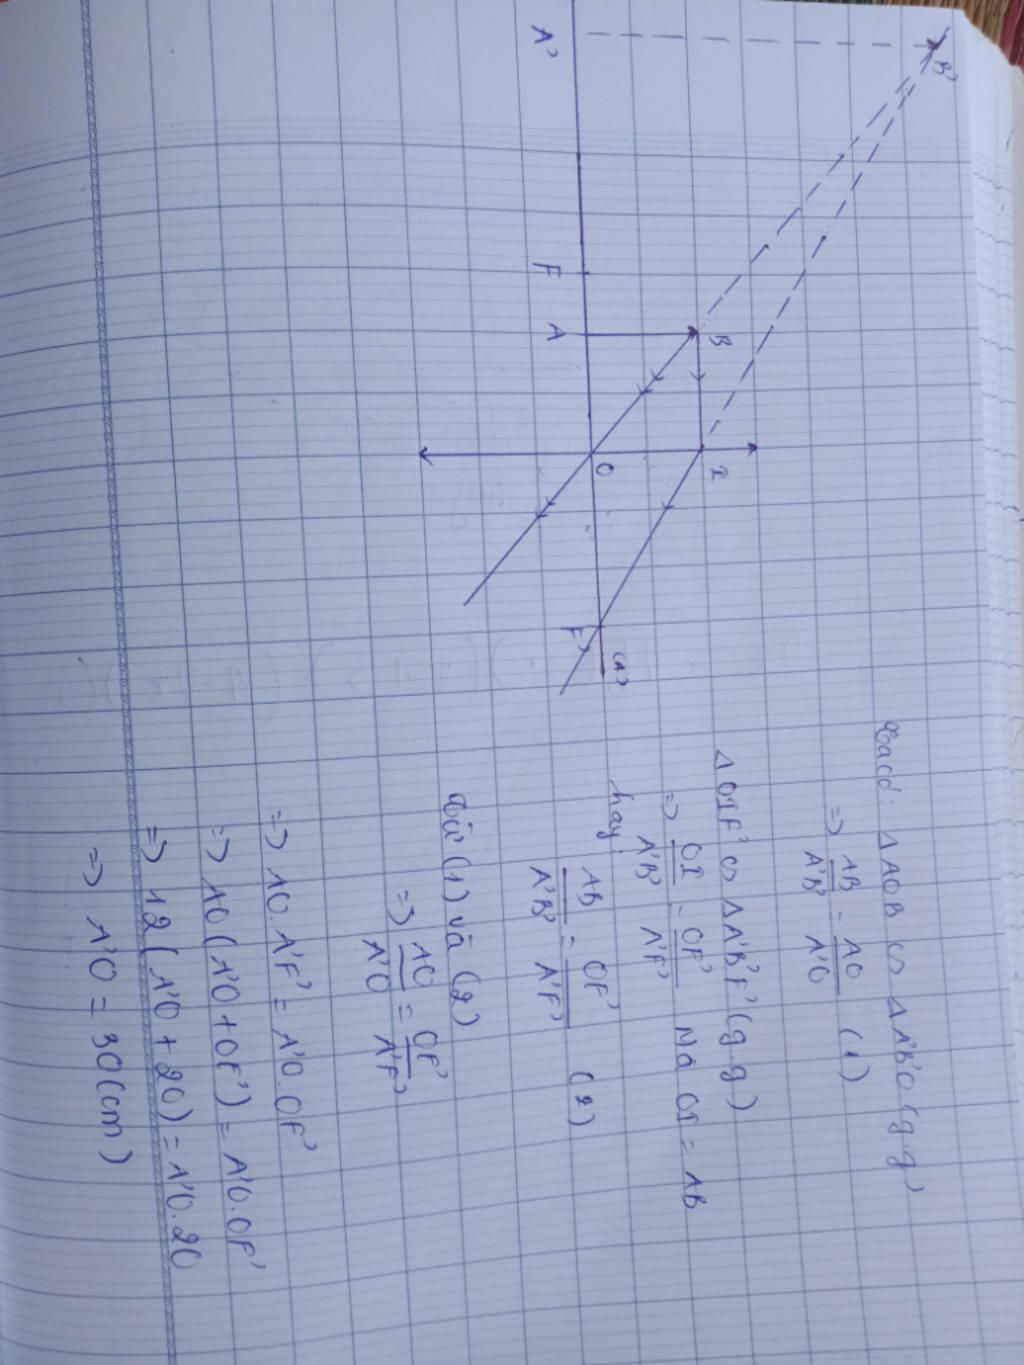 B'
A'
F
A
B
O
I
F'
(Δ)
Ta có: Δ AOB ∽ Δ A'B'O (g.g)
=> AB/A'B' = AO/A'O (1)
Δ OIF' ∽ Δ A'B'F' (g.g)
=> OI/A'B' = OF'/A'F' Mà OI = AB
hay: AB/A'B' = OF'/A'F' (2)
Từ (1) và (2)
=> AO/A'O = OF'/A'F'
=> AO. A'F' = A'O. OF'
=> AO (A'O + OF') = A'O. OF'
=> 12 (A'O + 20) = A'O. 20
=> A'O = 30 (cm)